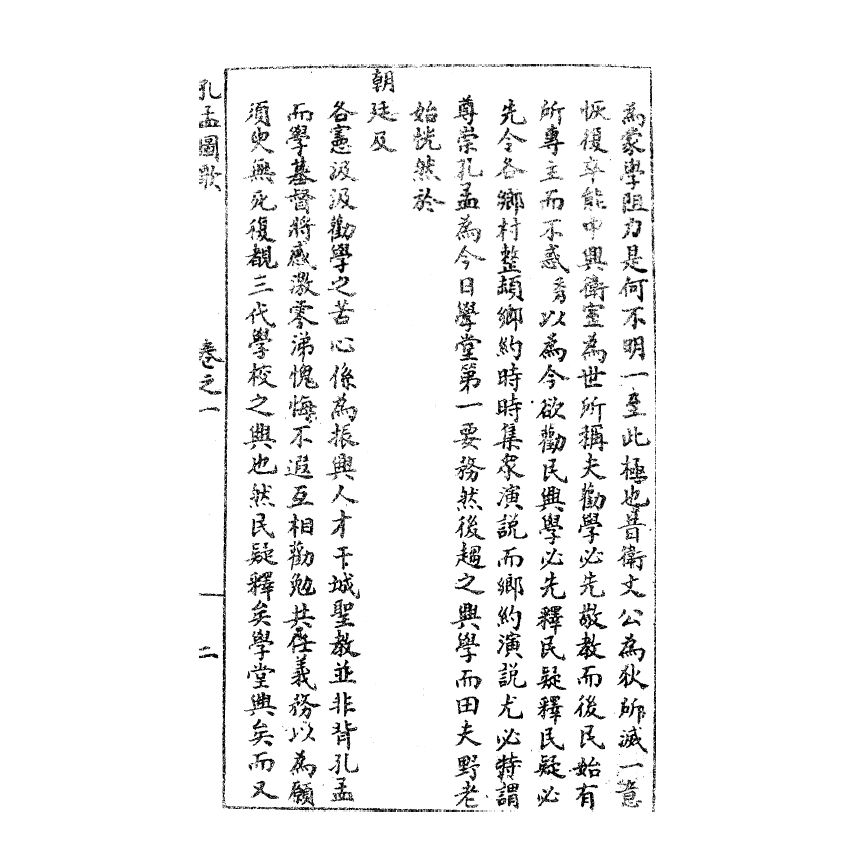 為蒙學阻力是何不明一至此極也昔衛文公為狄所滅一意
恢復卒能中興衛室為世所稱夫勸學必先敬教而後民始有
所專主而不惑 以為今欲勸民興學必先釋民疑釋民疑必
先令各鄉村整頓鄉約時時集眾演說而鄉約演說尤必特謂
尊崇孔孟為今日學堂第一要務然後趨之興學而田夫野老
始恍然於
朝廷及
各憲汲汲勸學之苦心係為振興人才干城聖教並非背孔孟
而學基督將感激零涕愧悔不遐互相勸勉共任義務以為願
須臾無死復覩三代學校之興也然民疑釋矣學堂興矣而又
孔孟圖歌 卷之一 二